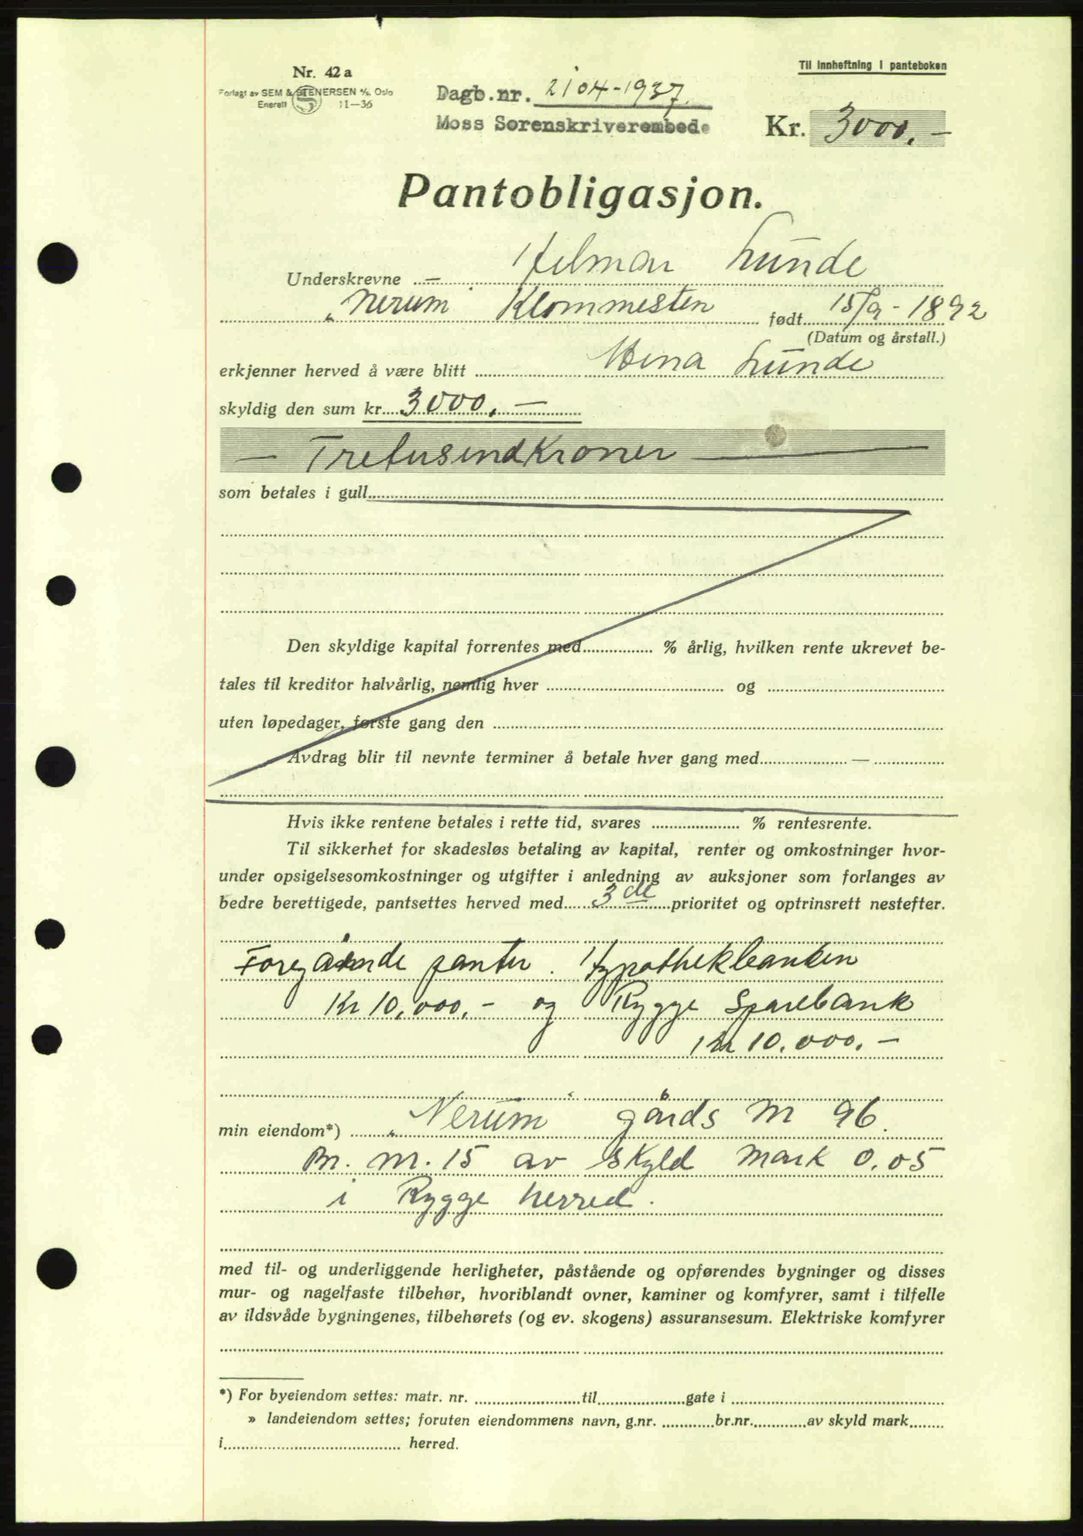 Til innheftning i panteboken
Nr. 42 a
Forlagt av SEM & STENERSEN A/S, Oslo
Enerett S 11—36
Dagb.nr. 2104-1937.
Moss Sorenskriverembede
Kr. 3000,-
Pantobligasjon.
Underskrevne — Hilmar Lunde
"Nerum" Klommesten født 15/9-1892
(Datum og årstall.)
erkjenner herved å være blitt Mena Lunde
skyldig den sum kr. 3000,-
— Tretusindkroner —
som betales i gull
Den skyldige kapital forrentes med % årlig, hvilken rente ukrevet be-
tales til kreditor halvårlig, nemlig hver og
uten løpedager, første gang den
Avdrag blir til nevnte terminer å betale hver gang med —
Hvis ikke rentene betales i rette tid, svares % rentesrente.
Til sikkerhet for skadesløs betaling av kapital, renter og omkostninger hvor-
under opsigelsesomkostninger og utgifter i anledning av auksjoner som forlanges av
bedre berettigede, pantsettes herved med 3de prioritet og optrinsrett nestefter.
Foregående panter. Hypothekbanken
Kr 10.000.- og Rygge Sparebank
Kr 10.000.-
min eiendom*) "Nerum" gårds nr 96.
Br. nr. 15 av skyld mark 0.05
i Rygge herred.
med til- og underliggende herligheter, påstående og opførendes bygninger og disses
mur- og nagelfaste tilbehør, hvoriblandt ovner, kaminer og komfyrer, samt i tilfelle
av ildsvåde bygningenes, tilbehørets (og ev. skogens) assuransesum. Elektriske komfyrer
*) For byeiendom settes: matr. nr. til gate i
» landeiendom settes; foruten eiendommens navn, g.nr. br.nr. av skyld mark
i herred.